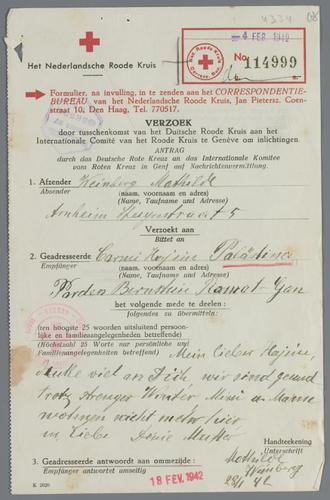 4334
68
4 FEB. 1942
Het Roode Kruis
No 114999
Het Nederlandsche Roode Kruis
Formulier, na invulling, in te zenden aan het CORRESPONDENTIE-
BUREAU van het Nederlandsche Roode Kruis, Jan Pietersz. Coen-
straat 10, Den Haag, Tel. 770517.
VERZOEK
door tusschenkomst van het Duitsche Roode Kruis aan het
Internationale Comité van het Roode Kruis te Genève om inlichtingen.
ANTRAG
durch das Deutsche Rote Kreuz an das Internationale Komitee
vom Roten Kreuz in Genf auf Nachrichtenvermittlung.
1. Afzender Weinberg Mathilde
Absender (naam, voornaam en adres)
(Name, Taufname und Adresse)
Arnheim 5
Verzoekt aan
Bittet an
2. Geadresseerde Carmi Palästina
Empfänger (naam, voornaam en adres)
(Name, Taufname und Adresse)
Pardes Bernstein Ramat-Gan
het volgende mede te deelen:
folgendes zu übermitteln:
(ten hoogste 25 woorden uitsluitend persoon-
lijke en familieaangelegenheden betreffende)
(Höchstzahl 25 Worte nur persönliche und
Familienangelegenheiten betreffend)
Mein Lieber
denke viel an Dich, wir sind gesund
trotz strenger Winter Mimi u Manne
wohnen nicht mehr hier
in Liebe Deine Mutter
Handteekening
Unterschrift
Mathilde
Weinberg
3. Geadresseerde antwoordt aan ommezijde:
Empfänger antwortet umseitig
18 FEV. 1942
K 2020